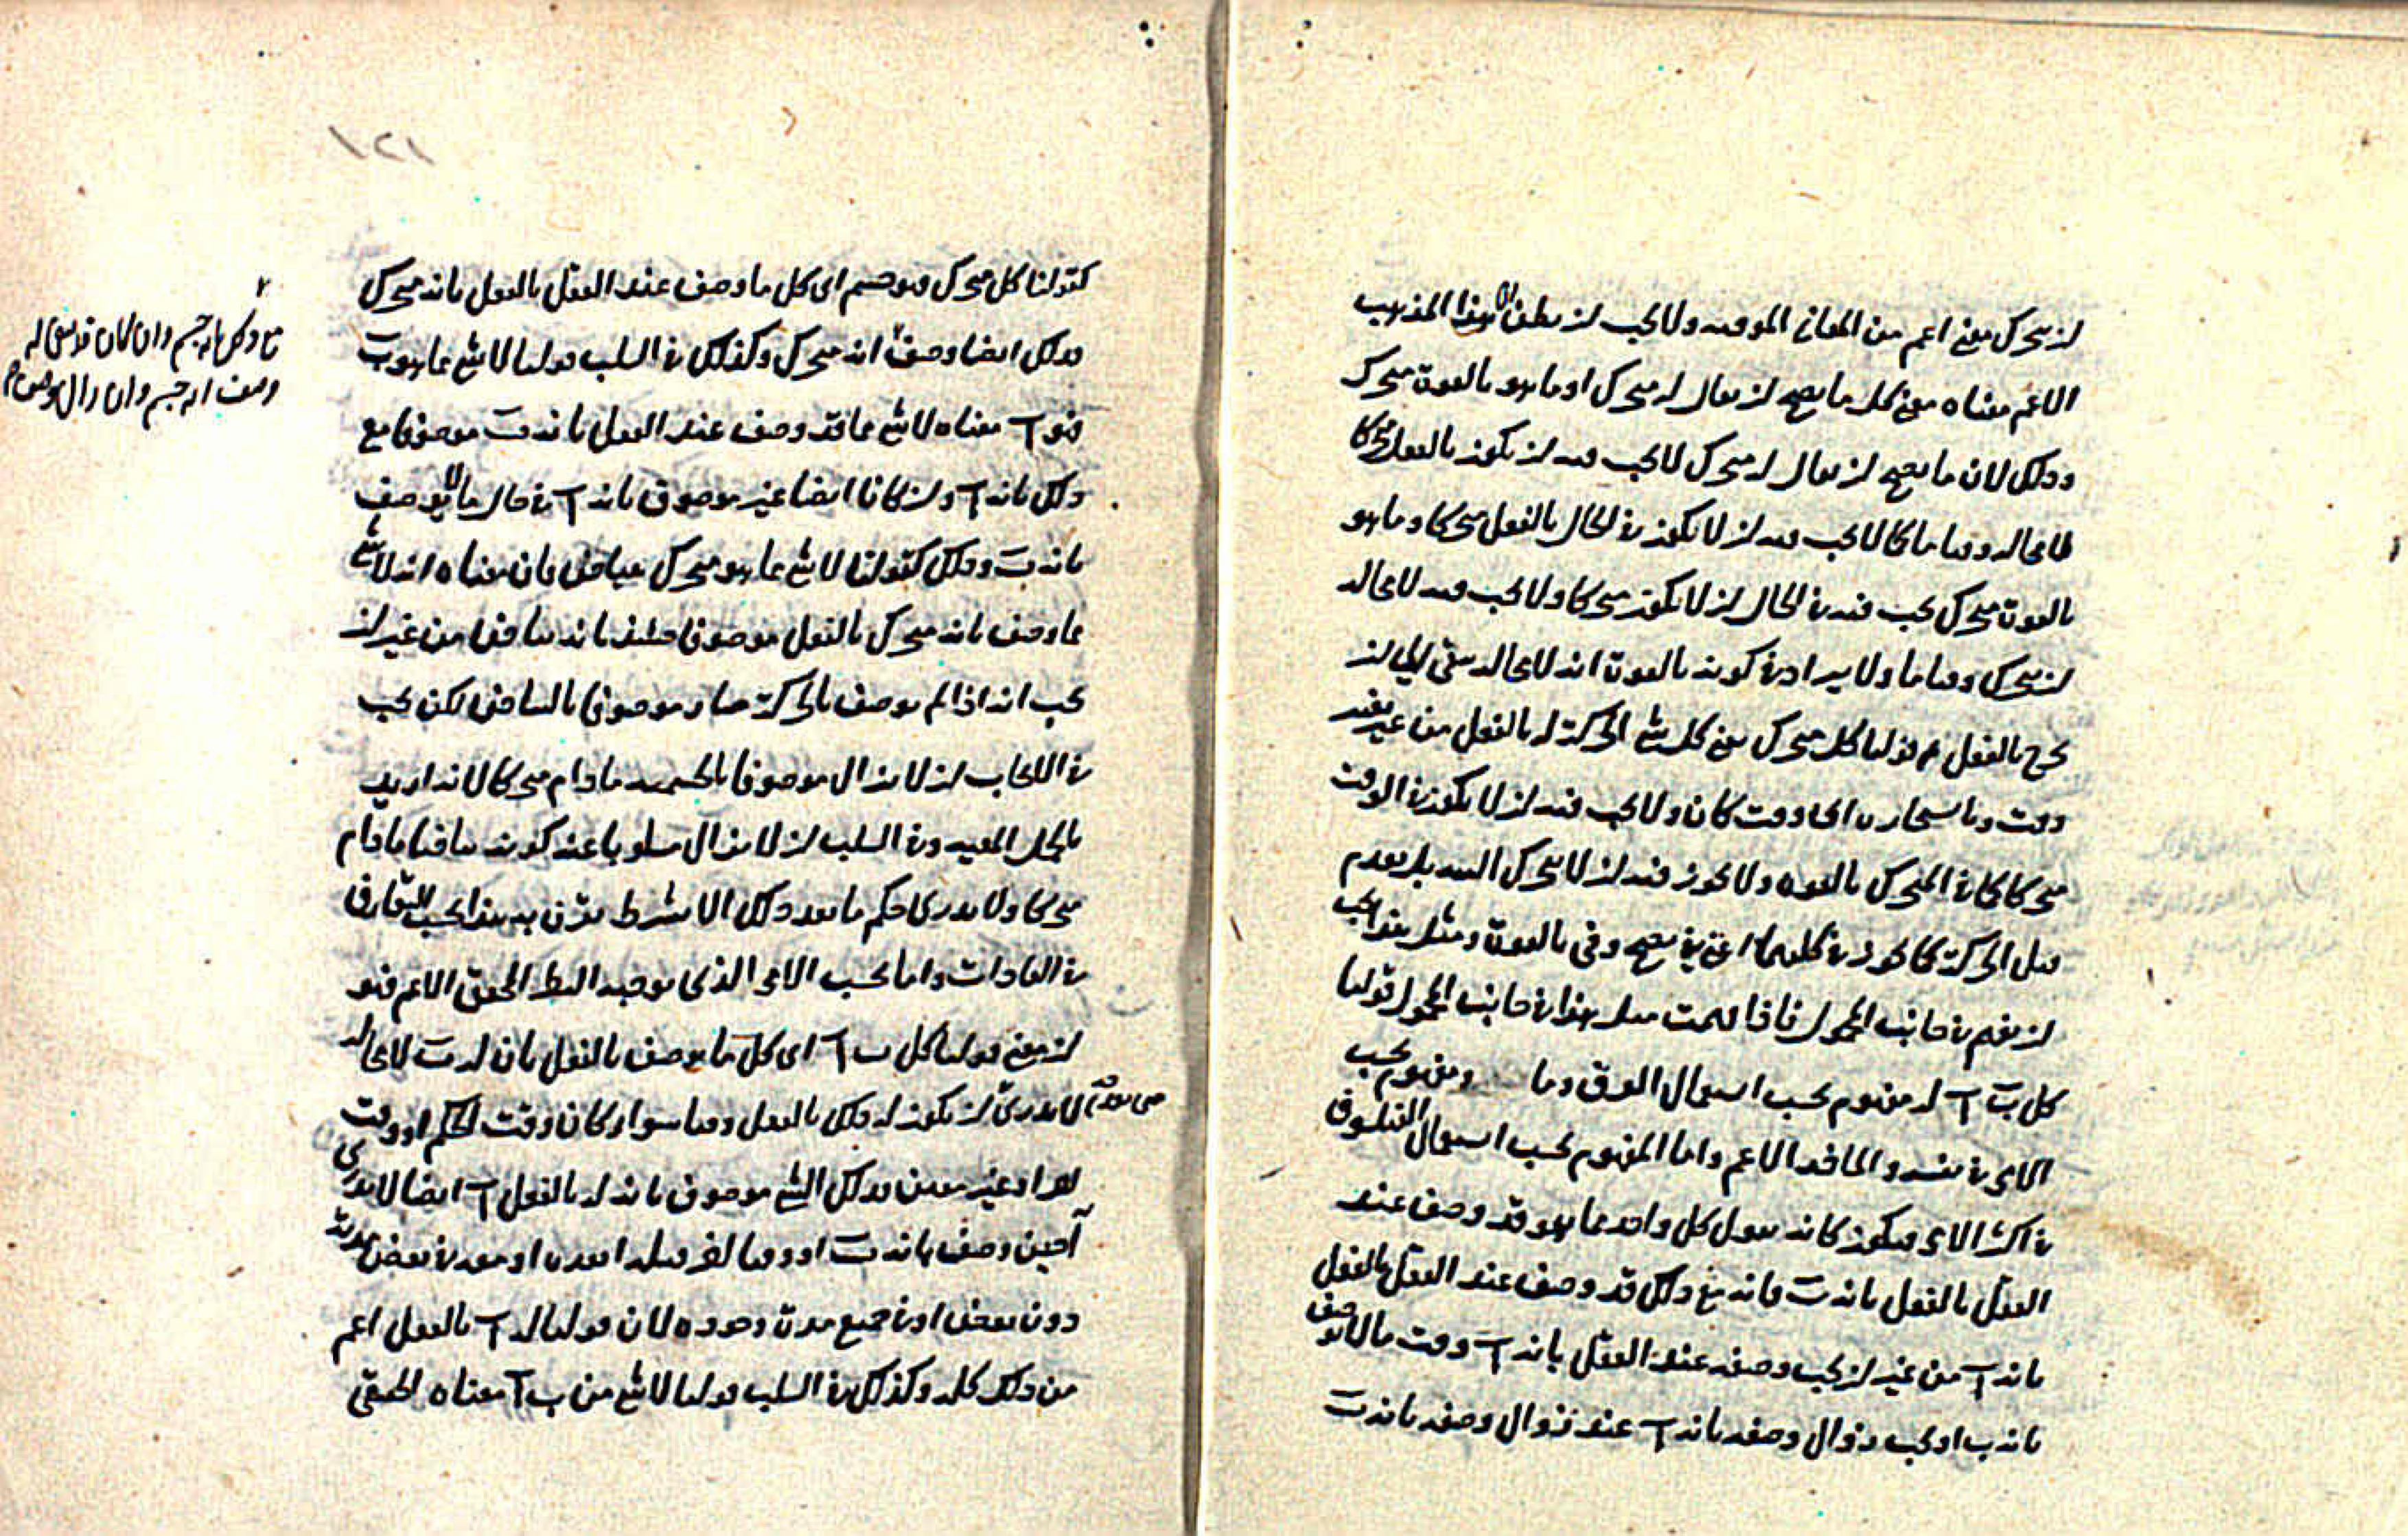 ان يتحرك معنى اعم من المعانى الموقتة ولا يجب ان يظن ان هذا المذهب
الاعم معناه معنى كل ما يصح ان يقال له متحرك او ما هو بالقوة متحرك
وذلك لان ما يصح ان يقال له متحرك لا يجب فيه ان يكون بالفعل متحركا
لا محالة وقتا ما كما لا يجب فيه ان لا يكون فى الحال بالفعل متحركا وما هو
بالقوة متحرك يجب فيه فى الحال ان لا يكون متحركا ولا يجب فيه لا محالة
ان يتحرك وقتا ما ولا يراد فى كونه بالقوة انه لا محالة ان
يخرج بالفعل ثم قولنا كل متحرك يعنى كل شئ الحركة له بالفعل من غير
وقت وما اى وقت كان ولا يجب فيه ان لا يكون فى الوقت
متحركا كما فى المتحرك بالقوة ولا يجوز فيه ان لا يتحرك البتة بل يعدم
قبل الحركة كما يجوز فى كليهما اعنى فى يصح وفى بالقوة ومثل هذا يجب
ان يفهم فى جانب المحمول فاذا فهمت مثل هذا فى جانب المحمول فقولنا
كل ب آ له مفهوم بحسب استعمال وما ومفهوم بحسب
الامر فى نفسه والماخذ الاعم واما المفهوم بحسب استعمال
فى اكثر الامر فيكون كانه يقول كل واحد مما هو قد وصف عند
العقل بالفعل بانه ب فانه مع ذلك قد وصف عند العقل بالفعل
بانه آ من غير ان يجب وصفه عند العقل بانه آ وقت ما لا يوصف
بانه ب او يجب زوال وصفه بانه آ عند زوال وصفه بانه ب
١٢١
كقولنا كل متحرك فهو جسم اى كل ما وصف عند العقل بالفعل بانه متحرك
فذلك ايضا وصف انه متحرك وكذلك فى السلب قولنا لا شئ مما هو ب
فهو آ معناه لا شئ مما قد وصف عند العقل بانه ب موصوفا مع
ذلك بانه آ وان كانا ايضا غير موصوف بانه آ فى حال ما لا يوصف
بانه ب وذلك كقولنا لا شئ مما هو متحرك بساكن فان معناه انه لا شئ
مما وصف بانه متحرك بالفعل موصوفا بانه ساكن من غير ان
يجب انه اذا لم يوصف بالحركة صار موصوفا بالساكن لكن يجب
فى الايجاب ان لا يزال موصوفا بالجسمية ما دام متحركا لانه اريد
وفى السلب ان لا يزال مسلوبا عنه كونه ساكنا ما دام
متحركا ولا يدرى حكم ما بعد ذلك الا بشرط يقرن به هذا بحسب التعارف
فى العادات واما بحسب الامر الذى يوجبه النظر المحقق الاعم فهو
ان معنى قولنا كل ب آ اى كل ما يوصف بالفعل بان له ب لا محالة
لا يدرى ان يكون له ذلك بالفعل وقتا سواء كان وقت الحكم او وقت
او غير معين فذلك الشئ موصوف بانه له بالفعل آ ايضا لا يدرى
أحين وصف بانه ب او وقتا اخر قبله او بعده او معه فى بعض مدته
دون بعض او فى جميع مدة وجوده لان قولنا له آ بالفعل اعم
من ذلك كله وكذلك فى السلب قولنا لا شئ من ب آ معناه الحقيقى